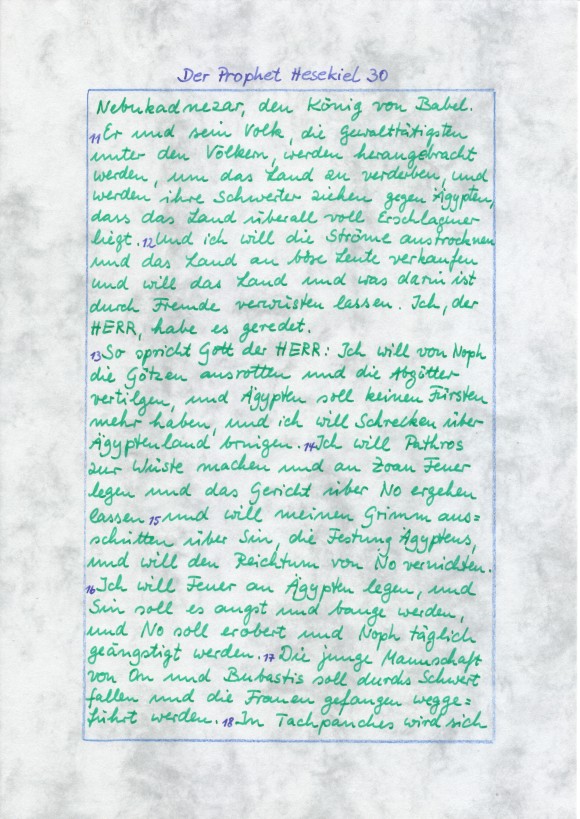 Der Prophet Hesekiel 30
Nebukadnezar, den König von Babel.
11 Er und sein Volk, die gewalttätigsten
unter den Völkern, werden herangebracht
werden, um das Land zu verderben, und
werden ihre Schwerter ziehen gegen Ägypten,
dass das Land überall voll Erschlagner
liegt. 12 Und ich will die Ströme austrocknen
und das Land an böse Leute verkaufen
und will das Land und was darin ist
durch Fremde verwüsten lassen. Ich, der
HERR, habe es geredet.
13 So spricht Gott der HERR: Ich will von Noph
die Götzen ausrotten und die Abgötter
vertilgen, und Ägypten soll keinen Fürsten
mehr haben, und ich will Schrecken über
Ägyptenland bringen. 14 Ich will Pathros
zur Wüste machen und an Zoan Feuer
legen und das Gericht über No ergehen
lassen 15 und will meinen Grimm aus=
schütten über Sin, die Festung Ägyptens,
und will den Reichtum von No vernichten.
16 Ich will Feuer an Ägypten legen, und
Sin soll es angst und bange werden,
und No soll erobert und Noph täglich
geängstigt werden. 17 Die junge Mannschaft
von On und Bubastis soll durchs Schwert
fallen und die Frauen gefangen wegge=
führt werden. 18 In Tachpanches wird sich